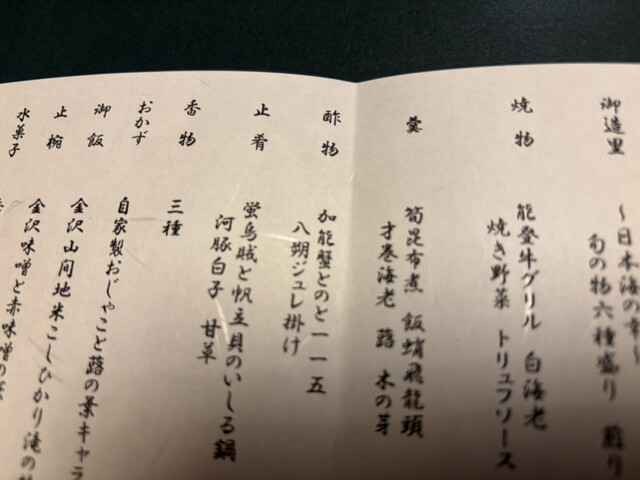 御造里
〜日本海の幸〜
旬の物六種盛り 煎り
焼物
能登牛グリル 白海老
焼き野菜 トリュフソース
羹
筍昆布煮 飯蛸飛龍頭
才巻海老 蕗 木の芽
酢物
加能蟹とのど一一五
八朔ジュレ掛け
止肴
蛍烏賊と帆立貝のいしる鍋
河豚白子 甘草
香物
三種
おかず
自家製おじゃこと蕗の葉キャラ
御飯
金沢山間地米こしひかり滝の
止椀
金沢味噌と赤味噌の
水菓子